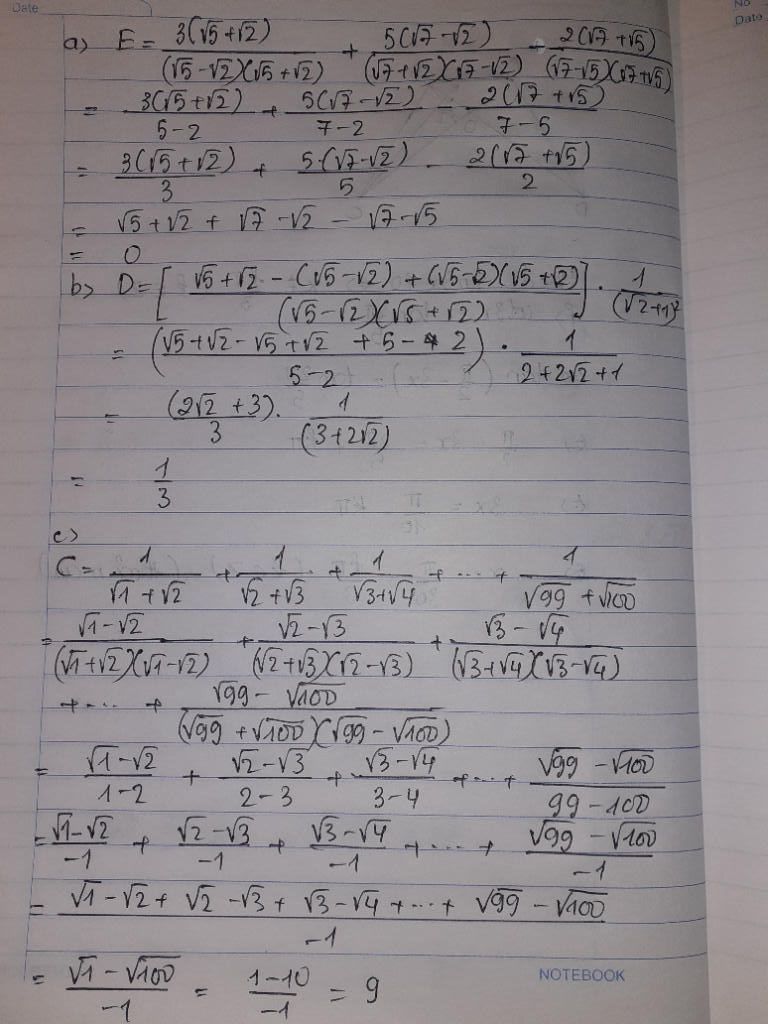 Date
No
Date
a) E = 3(√5+√2)/((√5-√2)(√5+√2)) + 5(√7-√2)/((√7+√2)(√7-√2)) - 2(√7+√5)/((√7-√5)(√7+√5))
= 3(√5+√2)/(5-2) + 5(√7-√2)/(7-2) - 2(√7+√5)/(7-5)
= 3(√5+√2)/3 + 5·(√7-√2)/5 - 2(√7+√5)/2
= √5+√2 + √7-√2 - √7-√5
= 0
b) D = [(√5+√2-(√5-√2)+(√5-√2)(√5+√2))/((√5-√2)(√5+√2))] · 1/(√2+1)²
= ((√5+√2-√5+√2+5-2)/(5-2)) · 1/(2+2√2+1)
= (2√2+3)/3 · 1/(3+2√2)
= 1/3
c)
C = 1/(√1+√2) + 1/(√2+√3) + 1/(√3+√4) + ... + 1/(√99+√100)
= (√1-√2)/((√1+√2)(√1-√2)) + (√2-√3)/((√2+√3)(√2-√3)) + (√3-√4)/((√3+√4)(√3-√4))
+ ... + (√99-√100)/((√99+√100)(√99-√100))
= (√1-√2)/(1-2) + (√2-√3)/(2-3) + (√3-√4)/(3-4) + ... + (√99-√100)/(99-100)
= (√1-√2)/-1 + (√2-√3)/-1 + (√3-√4)/-1 + ... + (√99-√100)/-1
= (√1-√2+√2-√3+√3-√4+...+√99-√100)/-1
= (√1-√100)/-1 = (1-10)/-1 = 9
NOTEBOOK